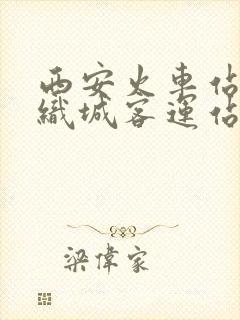 西安火車佔
織城客運佔
梁偉家